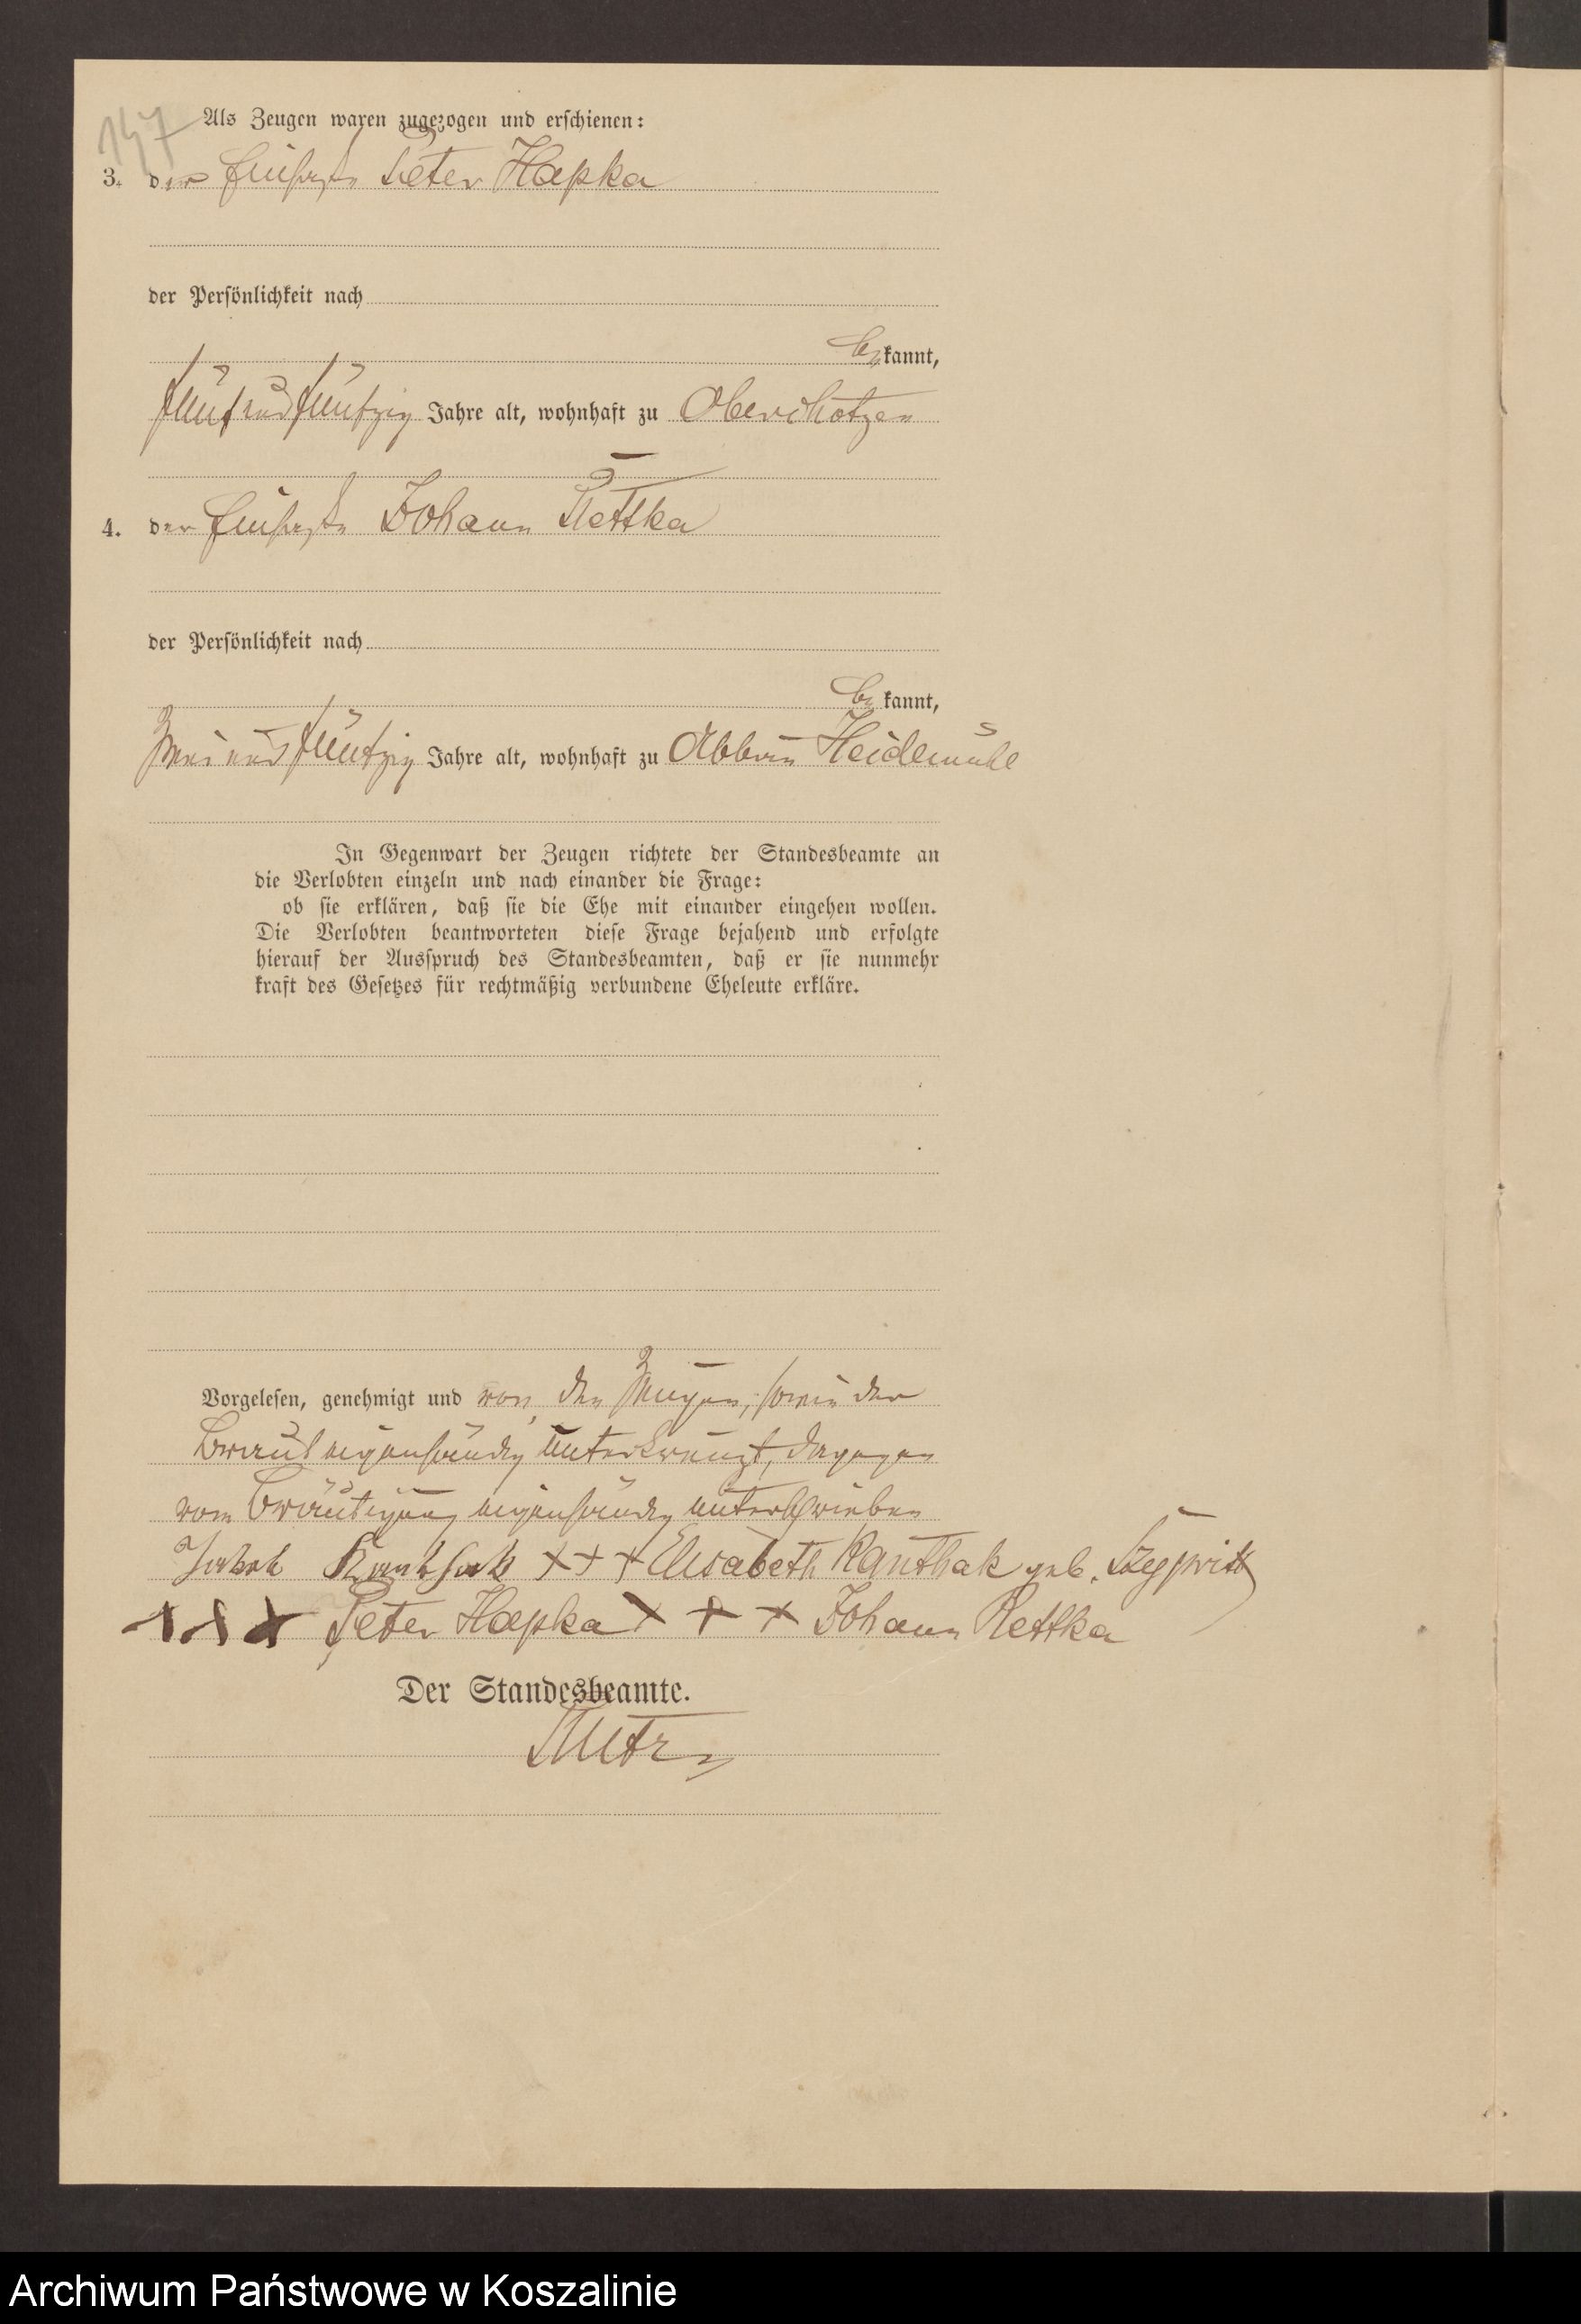 147
Als Zeugen waren zugezogen und erschienen:
3. der Peter Hapka
der Persönlichkeit nach
bekannt,
fünfundfünfzig Jahre alt, wohnhaft zu Oberchotzen
4. der Johann Rettka
der Persönlichkeit nach
bekannt,
zweiundfünfzig Jahre alt, wohnhaft zu Abbau Heidemühl
In Gegenwart der Zeugen richtete der Standesbeamte an
die Verlobten einzeln und nach einander die Frage:
ob sie erklären, daß sie die Ehe mit einander eingehen wollen.
Die Verlobten beantworteten diese Frage bejahend und erfolgte
hierauf der Ausspruch des Standesbeamten, daß er sie nunmehr
kraft des Gesetzes für rechtmäßig verbundene Eheleute erkläre.
Vorgelesen, genehmigt und von den Zeugen, sowie der
Braut eigenhändig unterkreuzt, dagegen
vom Bräutigam eigenhändig unterschrieben
Jakob Kanthak +++ Elisabeth Kanthak geb.
+++ Peter Hapka + + + Johann Rettka
Der Standesbeamte.
Archiwum Państwowe w Koszalinie